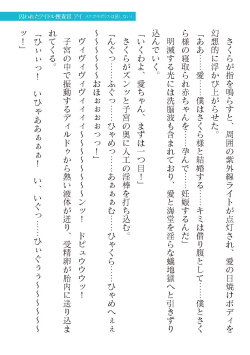 囚われたアイドル捜査官 アイ
さくらが指を鳴らすと、周囲の紫外線ライトが点灯され、愛の日焼けボディを
幻想的に浮かび上がらせた。
「ああ……愛……僕はさくら様と結婚する……キミは借り腹として……僕とさく
ら様の寝取られ赤ちゃんを……孕んで……妊娠するんだ」
明滅する光には洗脳波も含まれており、愛と海堂を淫らな蟻地獄へと引きずり
込んでいく。
「いくわよ、愛ちゃん。まずは一つ目！」
さくらがズンッと子宮の奥に人工の淫棒を打ち込む。
「んぐっ……ふぐっ……ひゃめぇ……むぅ……ひゃくら……ひゃめへぇぇ
ヴィヴィヴィヴイイイイイイイ～～～～～ンッ！　ドビュウウウッ！
子宮の中で振動するディルドゥから熱い液体が迸り、受精卵が胎内に送り込ま
れてくる。
「ひぃぃっ！　いひゃああぁぁぁ！　い、いぐっ……ひぃぐぅぅ～～～～～～
ッ！」